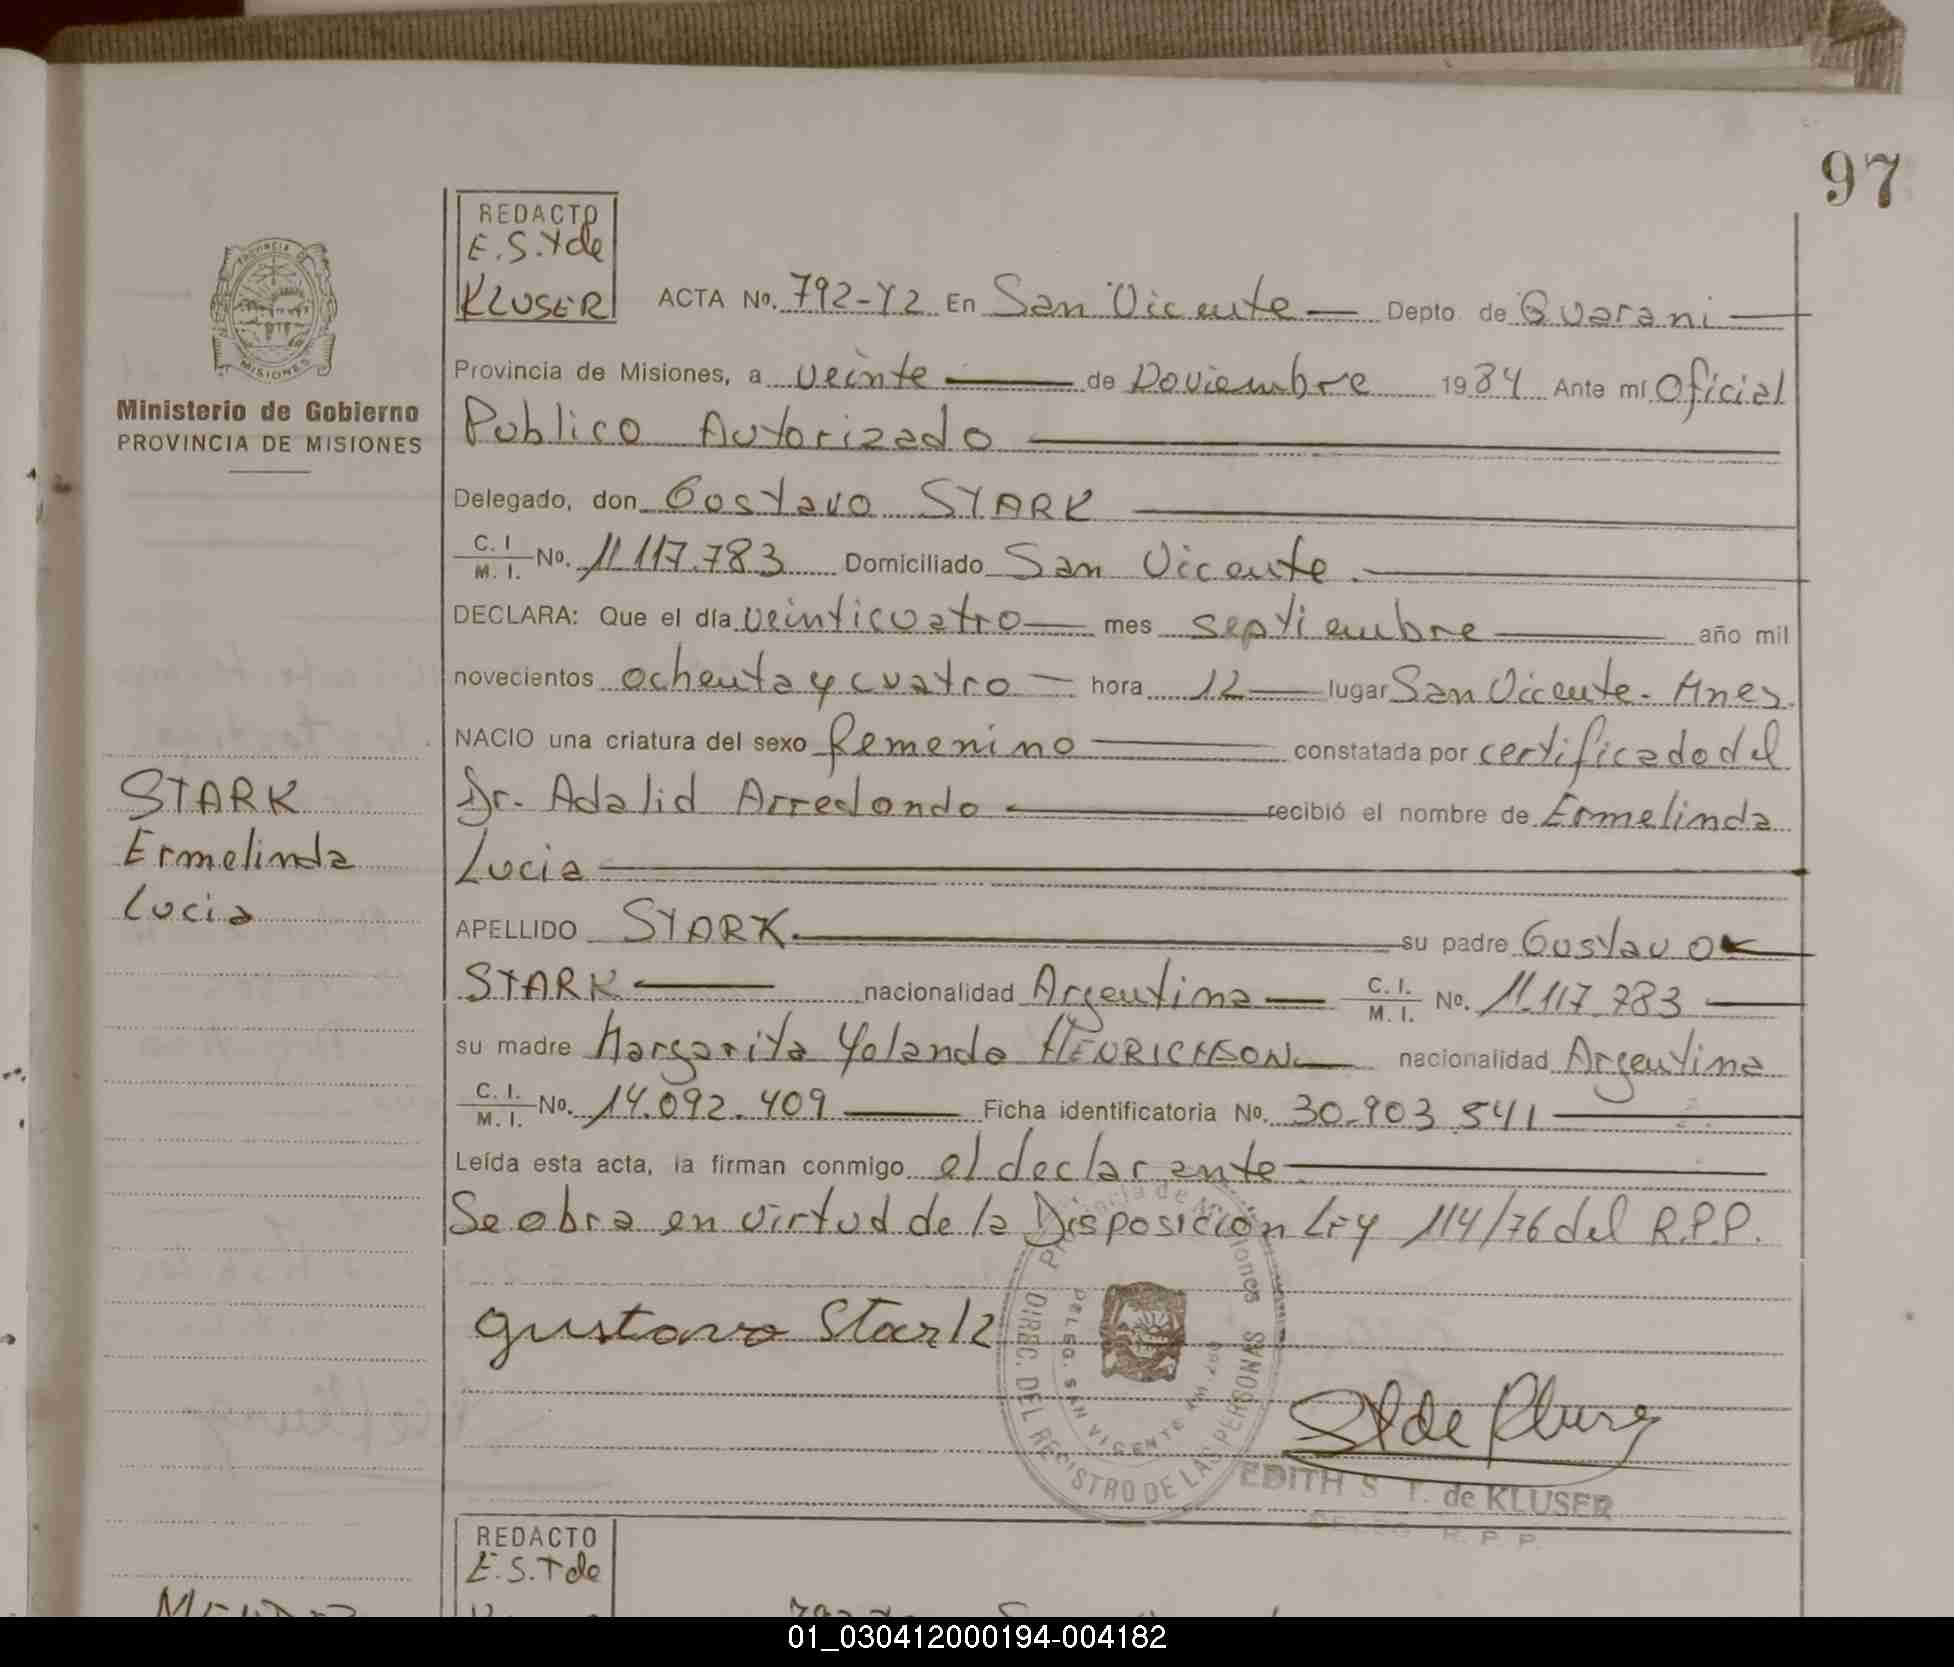 97
REDACTO
E. S. T de
KLUSER
ACTA No. 792-T2 En San Vicente Depto de Guarani
PROVINCIA DE
MISIONES
Ministerio de Gobierno
PROVINCIA DE MISIONES
Provincia de Misiones, a veinte de Noviembre 1984 Ante mí Oficial
Publico Autorizado
Delegado, don Gustavo STARK
C. I. M. I. No. 11.117.783 Domiciliado San Vicente.
DECLARA: Que el día veinticuatro mes septiembre año mil
novecientos ochenta y cuatro hora 12 lugar San Vicente. Mnes.
NACIO una criatura del sexo femenino constatada por certificado del
Dr. Adalid Arredondo recibió el nombre de Ermelinda
Lucia
STARK
Ermelinda
Lucia
APELLIDO STARK. su padre Gustavo
STARK nacionalidad Argentina C. I. M. I. No. 11.117.783
su madre Margarita Yolanda HENRICHSON nacionalidad Argentina
C. I. M. I. No. 14.092.409 Ficha identificatoria No. 30.903.541
Leída esta acta, la firman conmigo el declarante.
Se obra en virtud de la Disposición Ley 114/76 del R.P.P.
Gustavo Stark
Provincia de Misiones
DIREC. DEL REGISTRO DE LAS PERSONAS
DELEG. SAN VICENTE
EDITH S. T. de KLUSER
DELEG. R. P. P.
REDACTO
E. S. T de
01_030412000194-004182